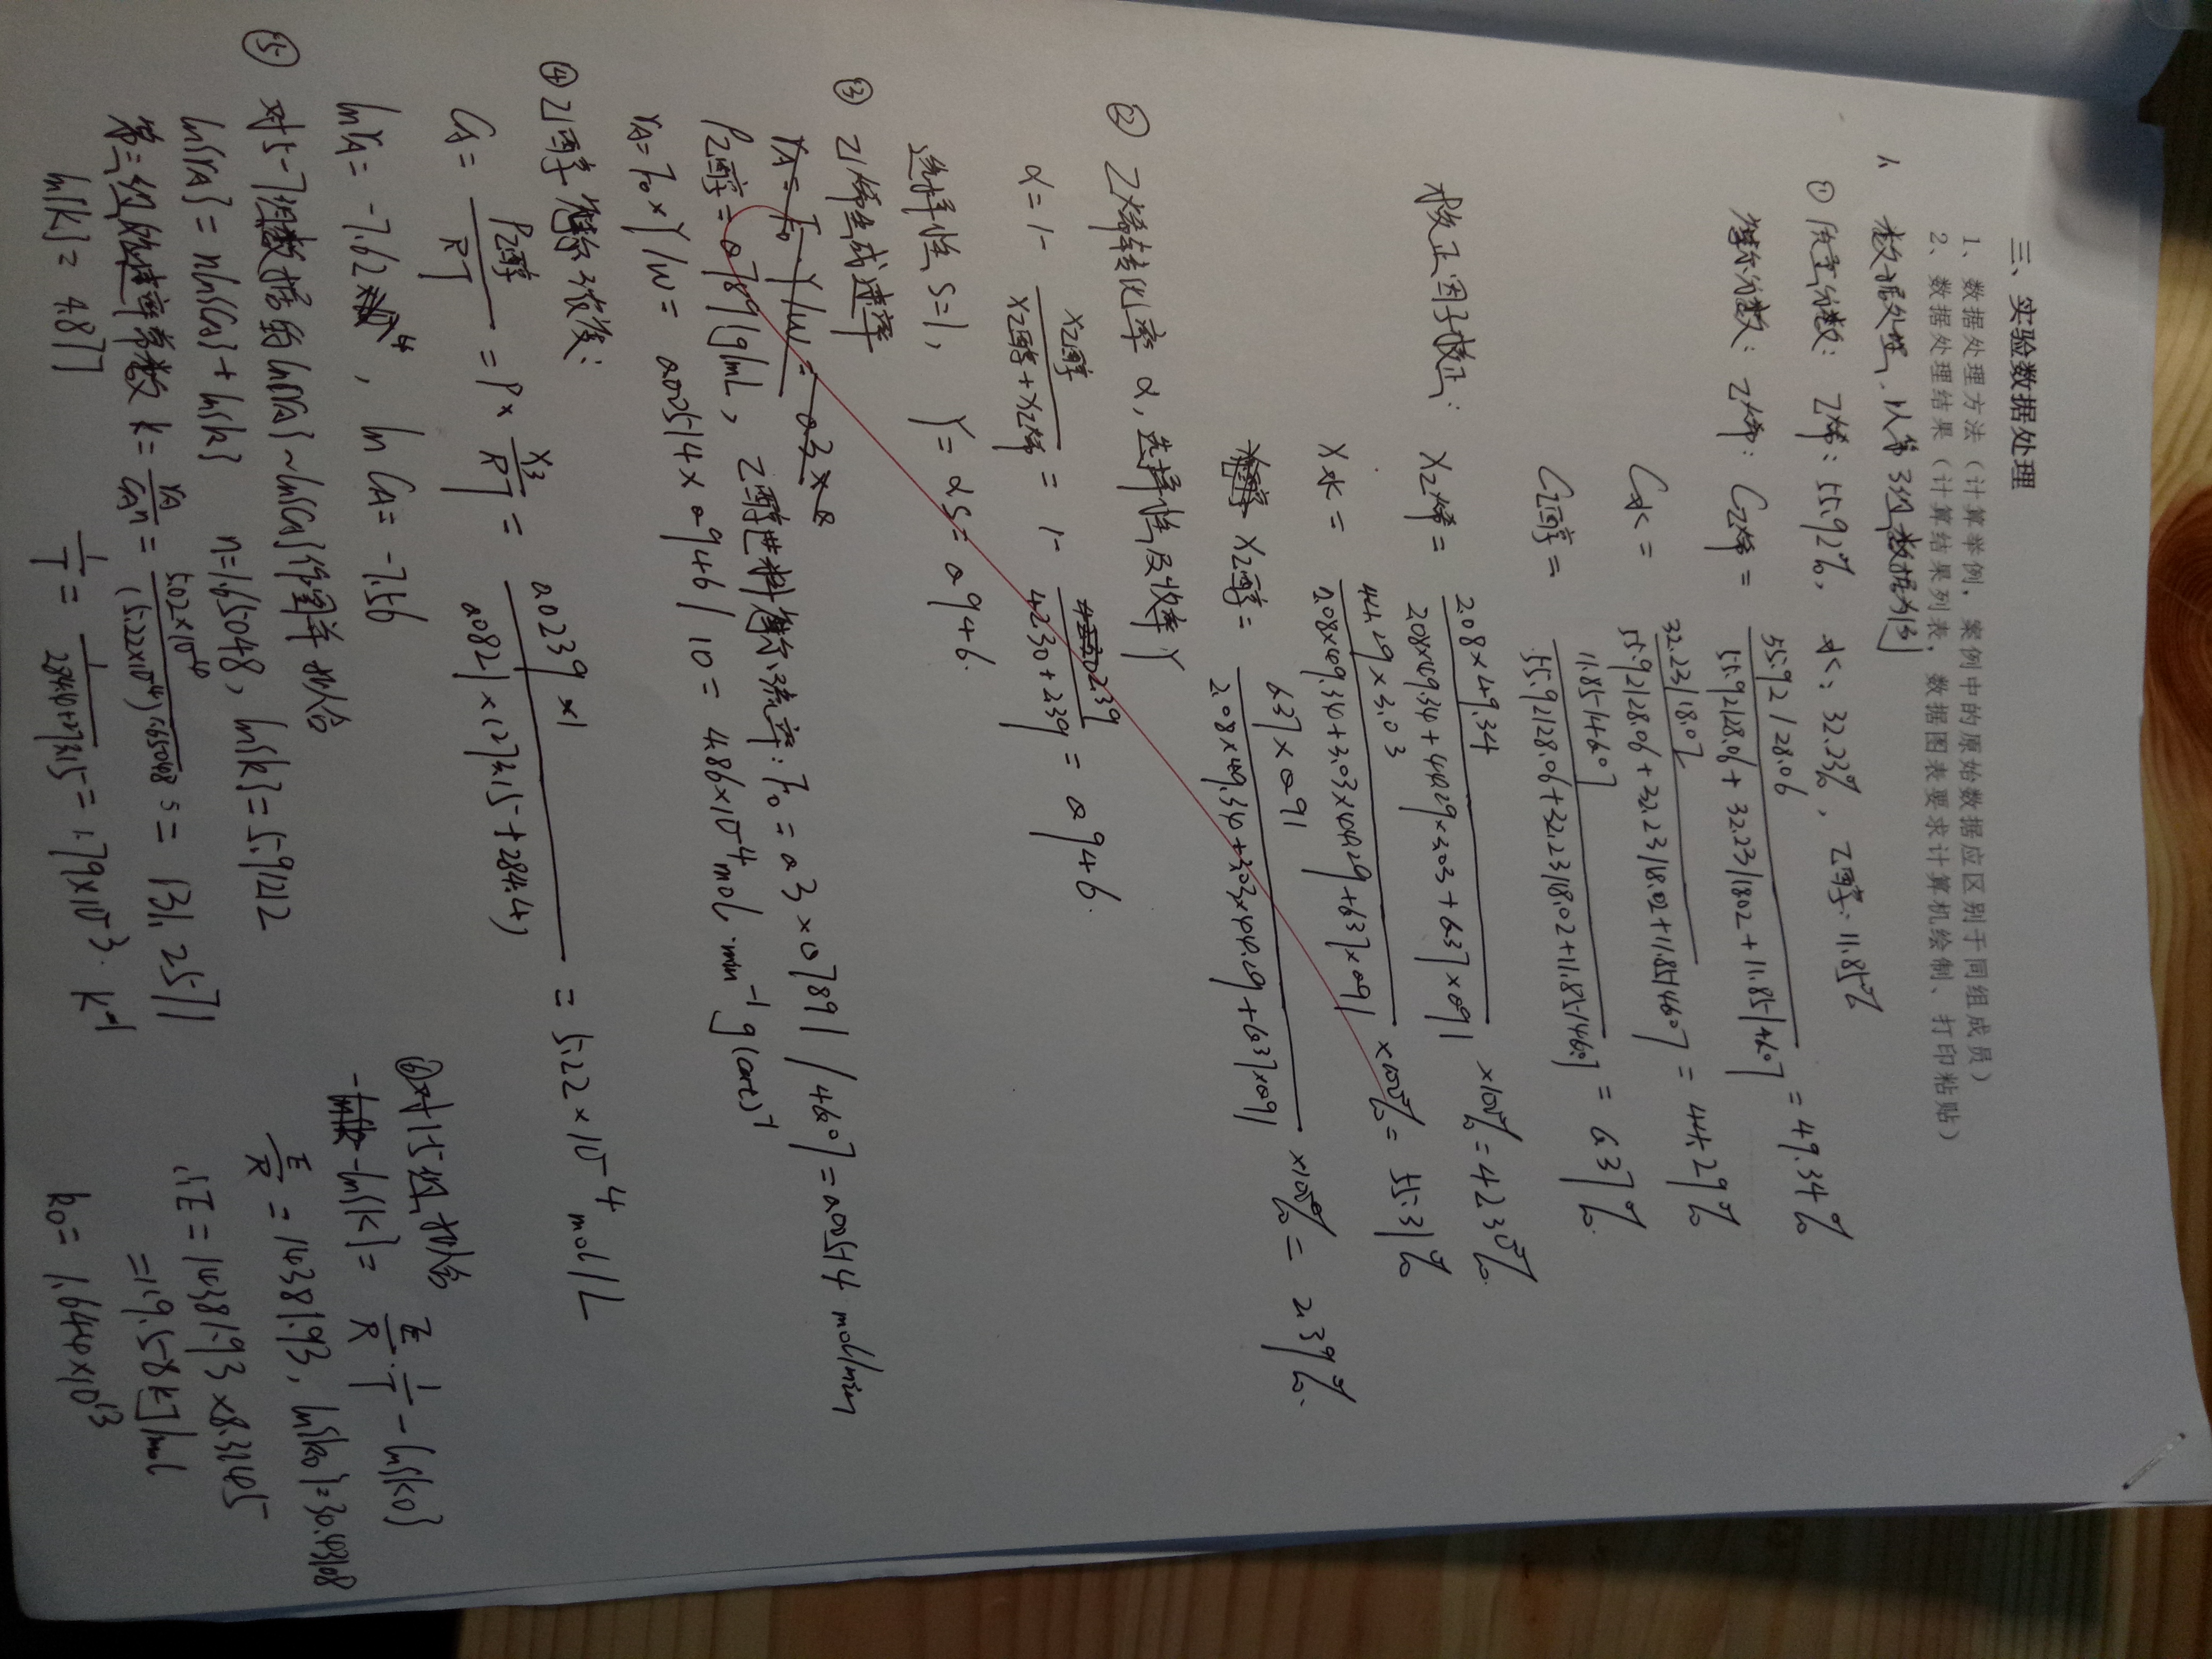 三、实验数据处理
1、数据处理方法（计算举例，案例中的原始数据应区别于同组成员）
2、数据处理结果（计算结果列表，数据图表要求计算机绘制、打印粘贴）
1. 数据处理，以第3组数据为例
① 质量分数：乙烯：55.92%，水：32.23%，乙醇：11.85%
摩尔分数：乙烯：C乙烯 = (55.92/28.06)/(55.92/28.06 + 32.23/18.02 + 11.85/46.07) = 49.34%
C水 = (32.23/18.02)/(55.92/28.06 + 32.23/18.02 + 11.85/46.07) = 44.29%
C乙醇 = (11.85/46.07)/(55.92/28.06 + 32.23/18.02 + 11.85/46.07) = 6.37%
校正因子校正：X乙烯 = (2.08×49.34)/(2.08×49.34 + 44.29×3.03 + 6.37×0.91) ×100% = 42.30%
X水 = (44.29×3.03)/(2.08×49.34 + 3.03×44.29 + 6.37×0.91) ×100% = 55.31%
X乙醇 = (6.37×0.91)/(2.08×49.34 + 3.03×44.29 + 6.37×0.91) ×100% = 2.39%.
② 乙烯转化率 α，选择性及收率 Y
α = 1 - X乙醇/(X乙醇 + X乙烯) = 1 - 2.39/(42.30 + 2.39) = 0.946.
选择性 S=1, Y = αS = 0.946.
③ 乙烯生成速率
rA = F0·Y/W = 0.3×
ρ乙醇 = 0.7891g/mL，乙醇进料摩尔流率：F0 = 0.3×0.7891/46.07 = 0.00514 mol/min
rA = F0×Y/W = 0.00514×0.946/10 = 4.86×10⁻⁴ mol·min⁻¹g(cat)⁻¹
④ 乙醇摩尔浓度：
CA = P乙醇/RT = P×X3/RT = (0.0239×1)/(0.0821×(273.15+284.4)) = 5.22×10⁻⁴ mol/L
lnrA = -7.62, lnCA = -7.56
⑤ 对5-7组数据的ln{rA}~ln{CA}作图并拟合
ln{rA} = nln{CA} + ln{k} n=1.65048, ln{k} = 5.91212
第三组处速率常数 k = rA/CAⁿ = 5.02×10⁻⁴/(5.22×10⁻⁴)^1.65048 = 131.2571
ln{k} = 4.877 1/T = 1/(284.4+273.15) = 1.79×10⁻³ K⁻¹
⑥ 对1-5组拟合
-ln{k} = E/R·1/T - ln{k0}
E/R = 14381.93, ln{k0} = 30.43108
∴E = 14381.93×8.31405
= 119.58kJ/mol
k0 = 1.644×10¹³